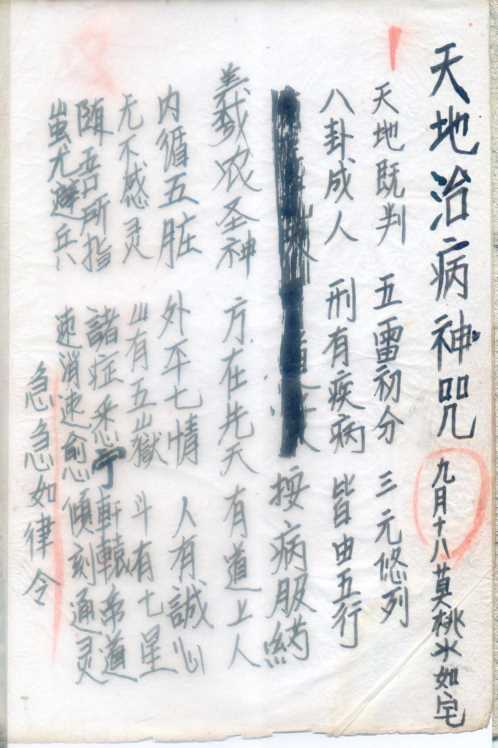 天地治病神咒 九月十八莫桃水如宅
天地既判 五雷初分 三元悠列
八卦成人 刑有疾病 皆由五行
按病服葯
羲农圣神 方在先天 有道上人
内循五脏 外平七情 人有誠心
无不感灵 山有五嶽 斗有七星
随吾所指 諸症悉宁 軒轅帝道
蚩尤避兵 速消速愈 傾刻通灵
急急如律令